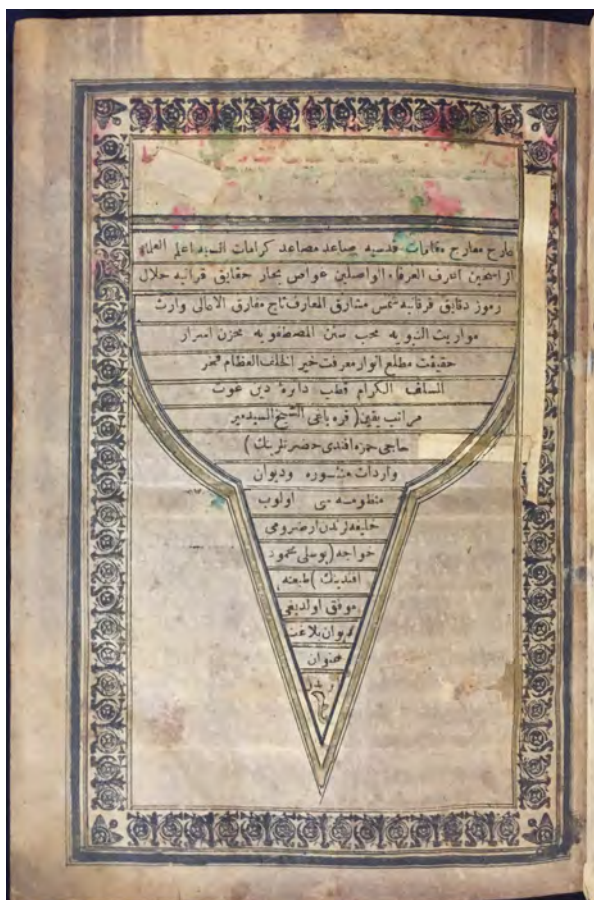 عارج معارج مقامات قدسيه صاعد مصاعد كرامات انسيه اعلم العلماء
الراسخين اعرف العرفاء الواصلين غواص بحار حقايق قرآنيه حلال
رموز دقايق فرقانيه شمس مشارق المعارف تاج مفارق الامالى وارث
مواريث النبويه محب سنن المصطفويه مخزن اسرار
حقيقت مطلع انوار معرفت خير الخلف العظام فخر
السلف الكرام قطب دائرۀ دين غوث
مراتب يقين (قره باغى الشيخ السيد مير
حاجى حمزه افندى حضرتلرينك)
واردات منثوره وديوان
منظومه سى اولوب
خليفه لرندن ارضرومى
خواجه (يوسلى محمود
افندينك) طبعنه
موفق اولديغى
ديوان بلاغت
عنوان